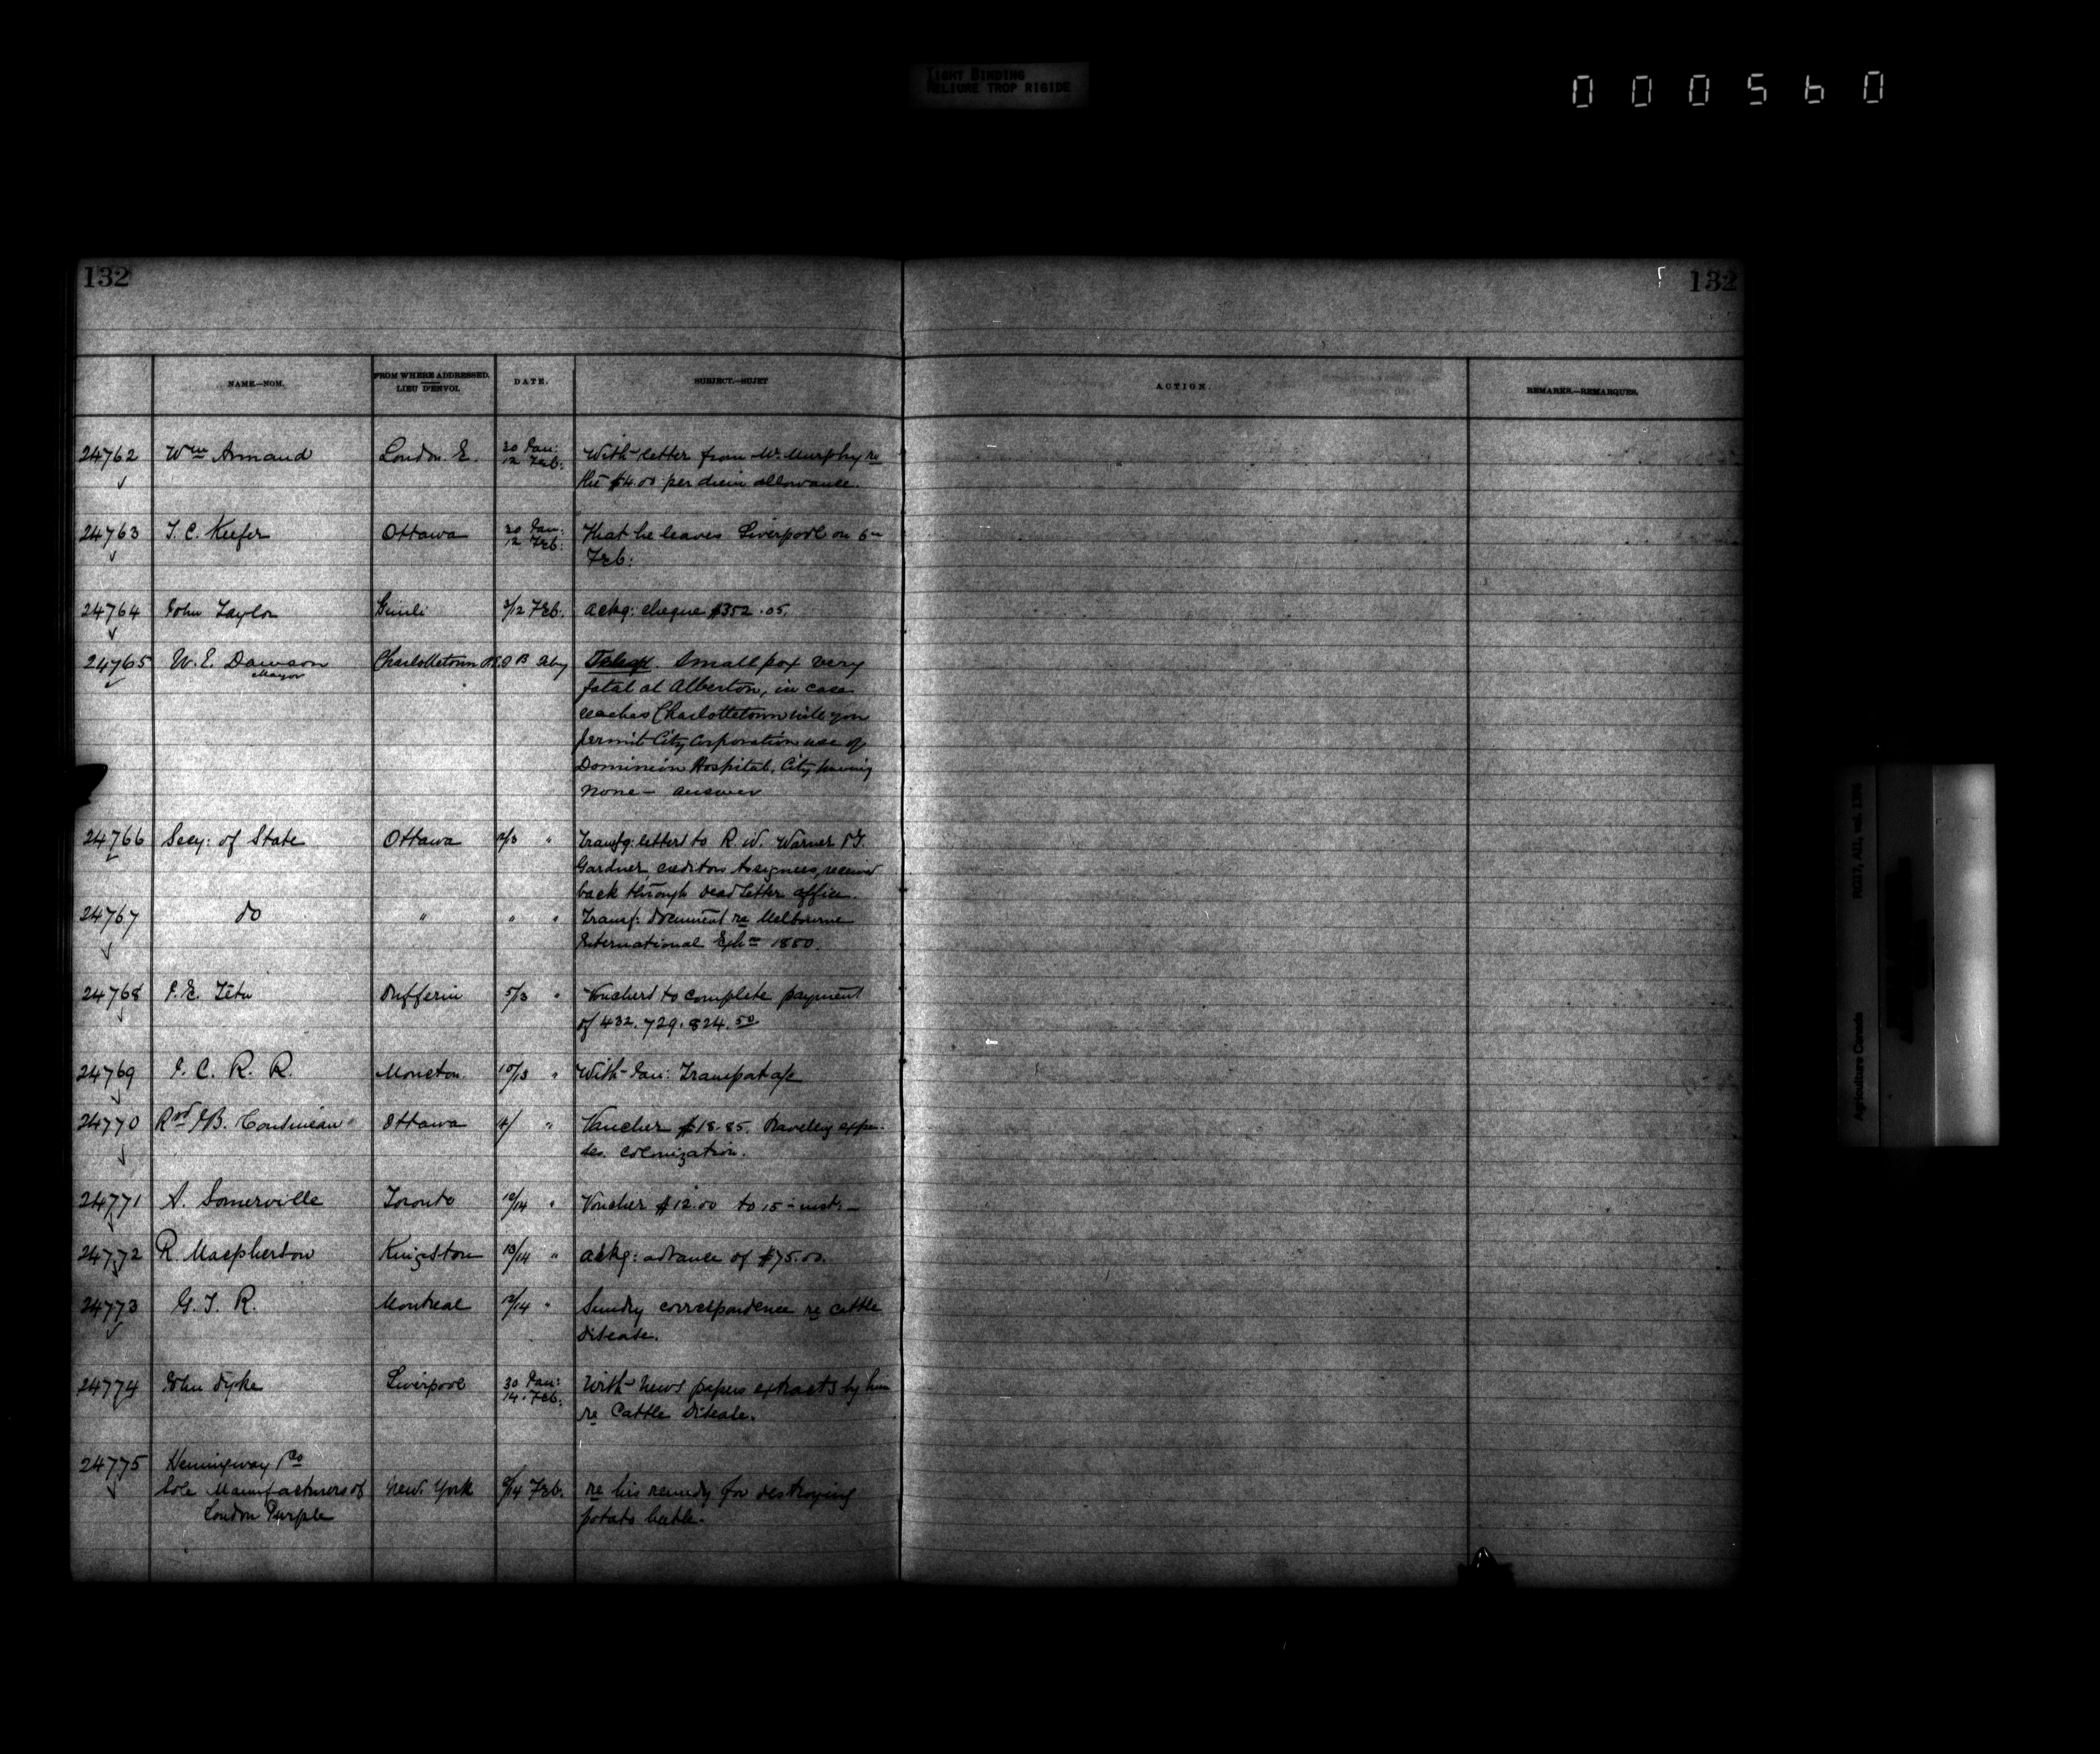 TIGHT BINDING
RELIURE TROP RIGIDE
000560
132
132
NAME.—NOM.
FROM WHERE ADDRESSED.
LIEU D'ENVOI.
DATE.
SUBJECT.—SUJET
ACTION.
REMARKS.—REMARQUES.
24762 Wm Annand London. E. 30 Jan: With letter from Mr. Murphy re
12 Feb: the $4.00 per diem allowance.
24763 T. C. Keefer Ottawa 30 Jan: That he leaves Liverpool on 6th
12 Feb: Feb:
24764 John Taylor Gimli 3/12 Feb. ackg: cheque $352.05.
24765 W. E. Dawson Charlottetown 13 Feby Telegr. Small pox very
Mayor fatal at Alberton, in case
reaches Charlottetown will you
permit City Corporation use of
Dominion Hospital, City having
none — answer
24766 Secy: of State Ottawa " letters to R. W. Warner
Gardner, creditors assignees, received
back through Dead Letter office.
24767 do " " " Transf: document re Melbourne
International Exhn 1880.
24768 J. E. Tétu Dufferin 5/13 " Vouchers to complete payment
of 432. 729. 824.50
24769 I. C. R. R. Moncton 10/13 " With Jan: Transport a/c
24770 Ottawa " Voucher $18.85. Travelling expen-
ses. colonization.
24771 A. Somerville Toronto 12/14 " Voucher $12.00 to 15th inst. —
24772 R. Macpherson Kingston 13/14 " ackg: advance of $75.00.
24773 G. T. R. Montreal 12/14 " Sundry correspondence re cattle
disease.
24774 John Dyke Liverpool 30 Jan: With News papers extracts by him
14. Feb. re Cattle Disease.
24775 Hemingway Co
Sole Manufacturers of New York /14 Feb. re his remedy for destroying
London Purple potato beetle.
RG17, AII, vol. 1396
Agriculture Canada